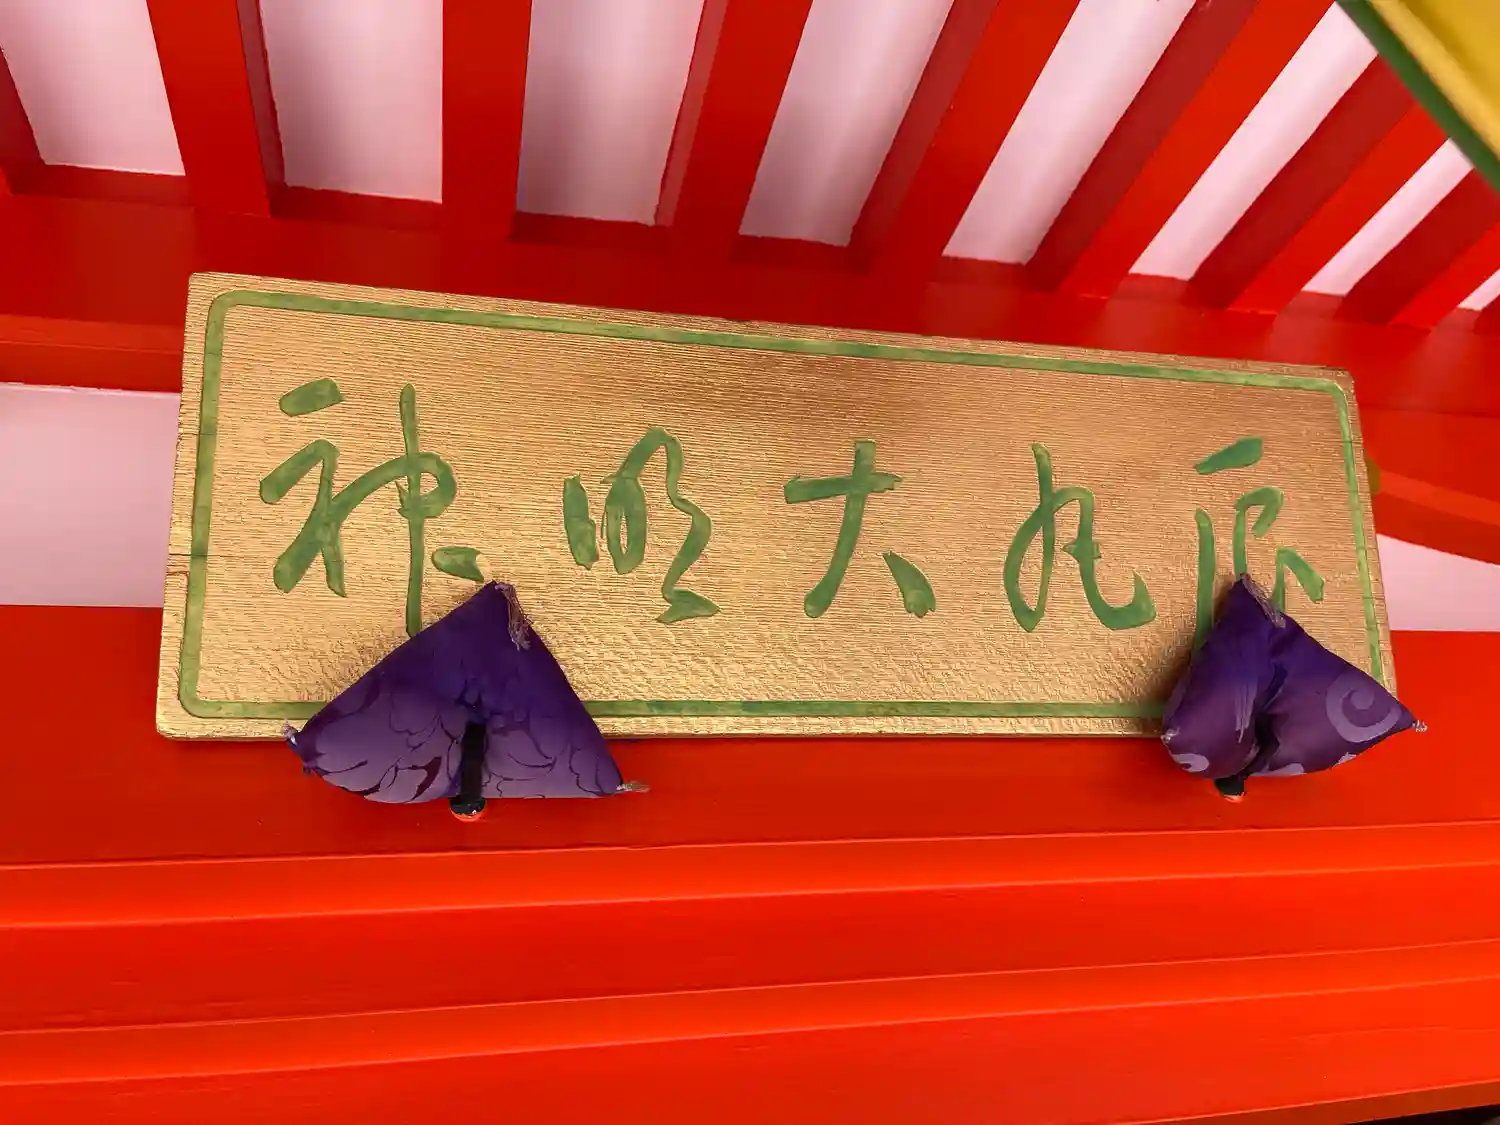 辰丸大明神